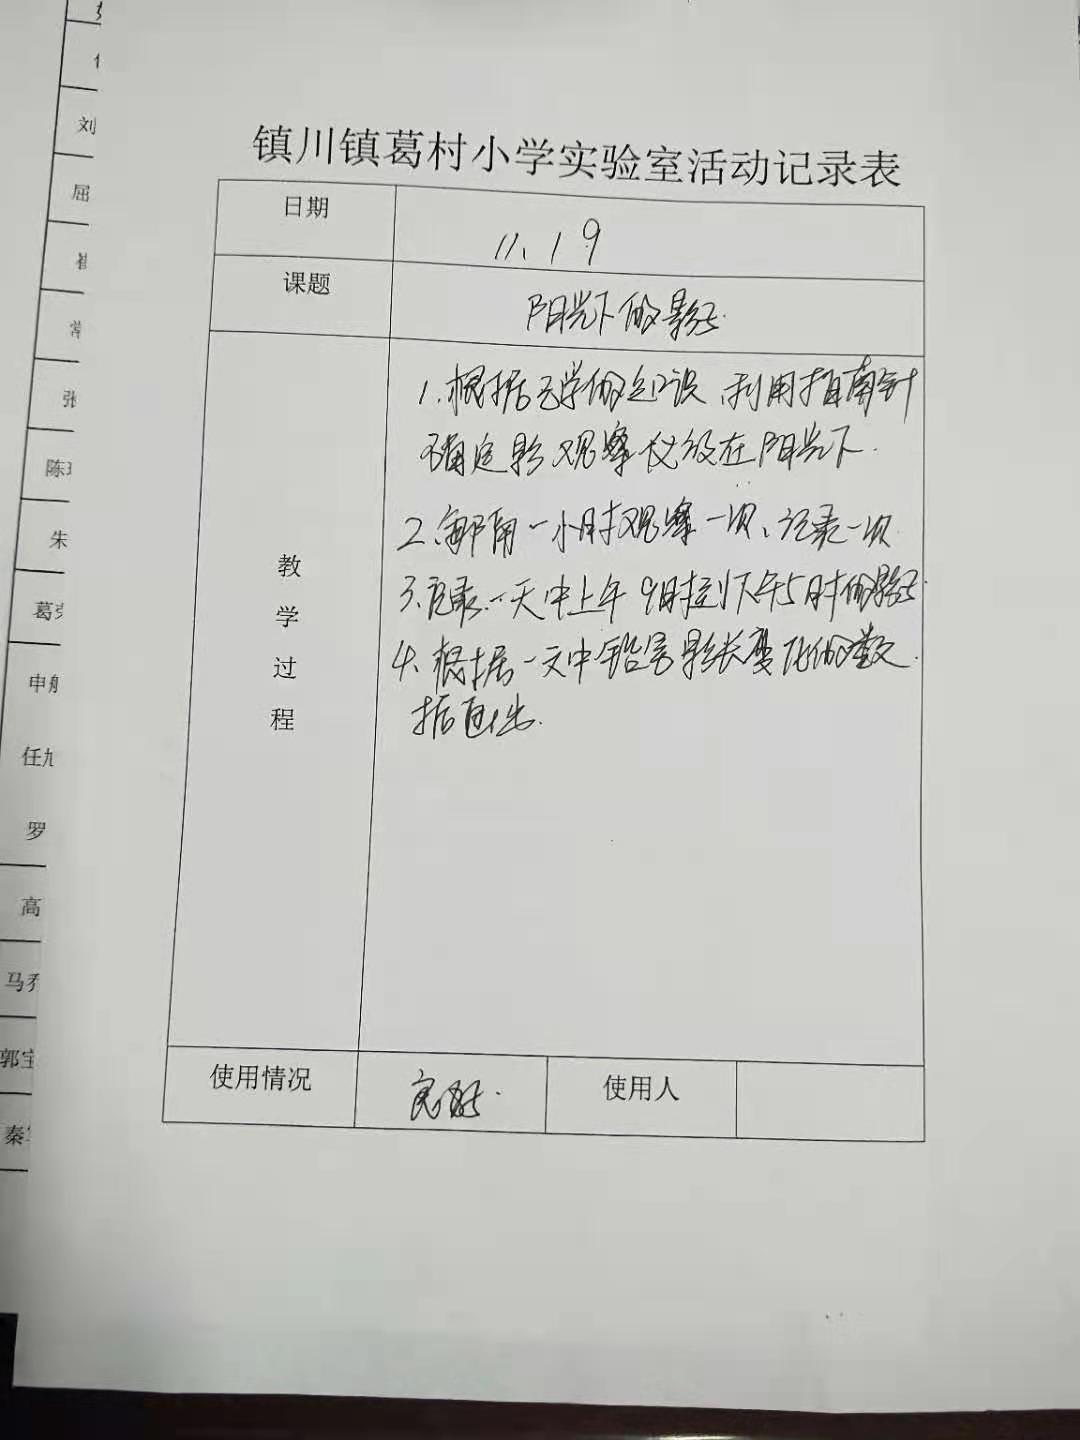 刘
屈
张
陈
朱
葛
申
任
罗
高
马
郭
秦
镇川镇葛村小学实验室活动记录表
日期
11.19
课题
阳光下的影子
教学过程
1.根据 学的知识、利用指南针
确定影观察仪放在阳光下.
2.每隔一小时观察一次、记录一次
3.记录一天中上午9时到下午5时的影子
4.根据一天中铅笔影长变化的数
据画出.
使用情况
完好.
使用人